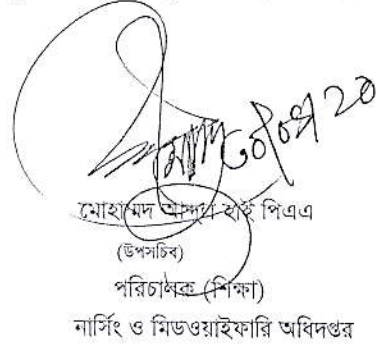 মোহাম্মদ আব্দুল হাই পিএএ
(উপসচিব)
পরিচালক (শিক্ষা)
নার্সিং ও মিডওয়াইফারি অধিদপ্তর